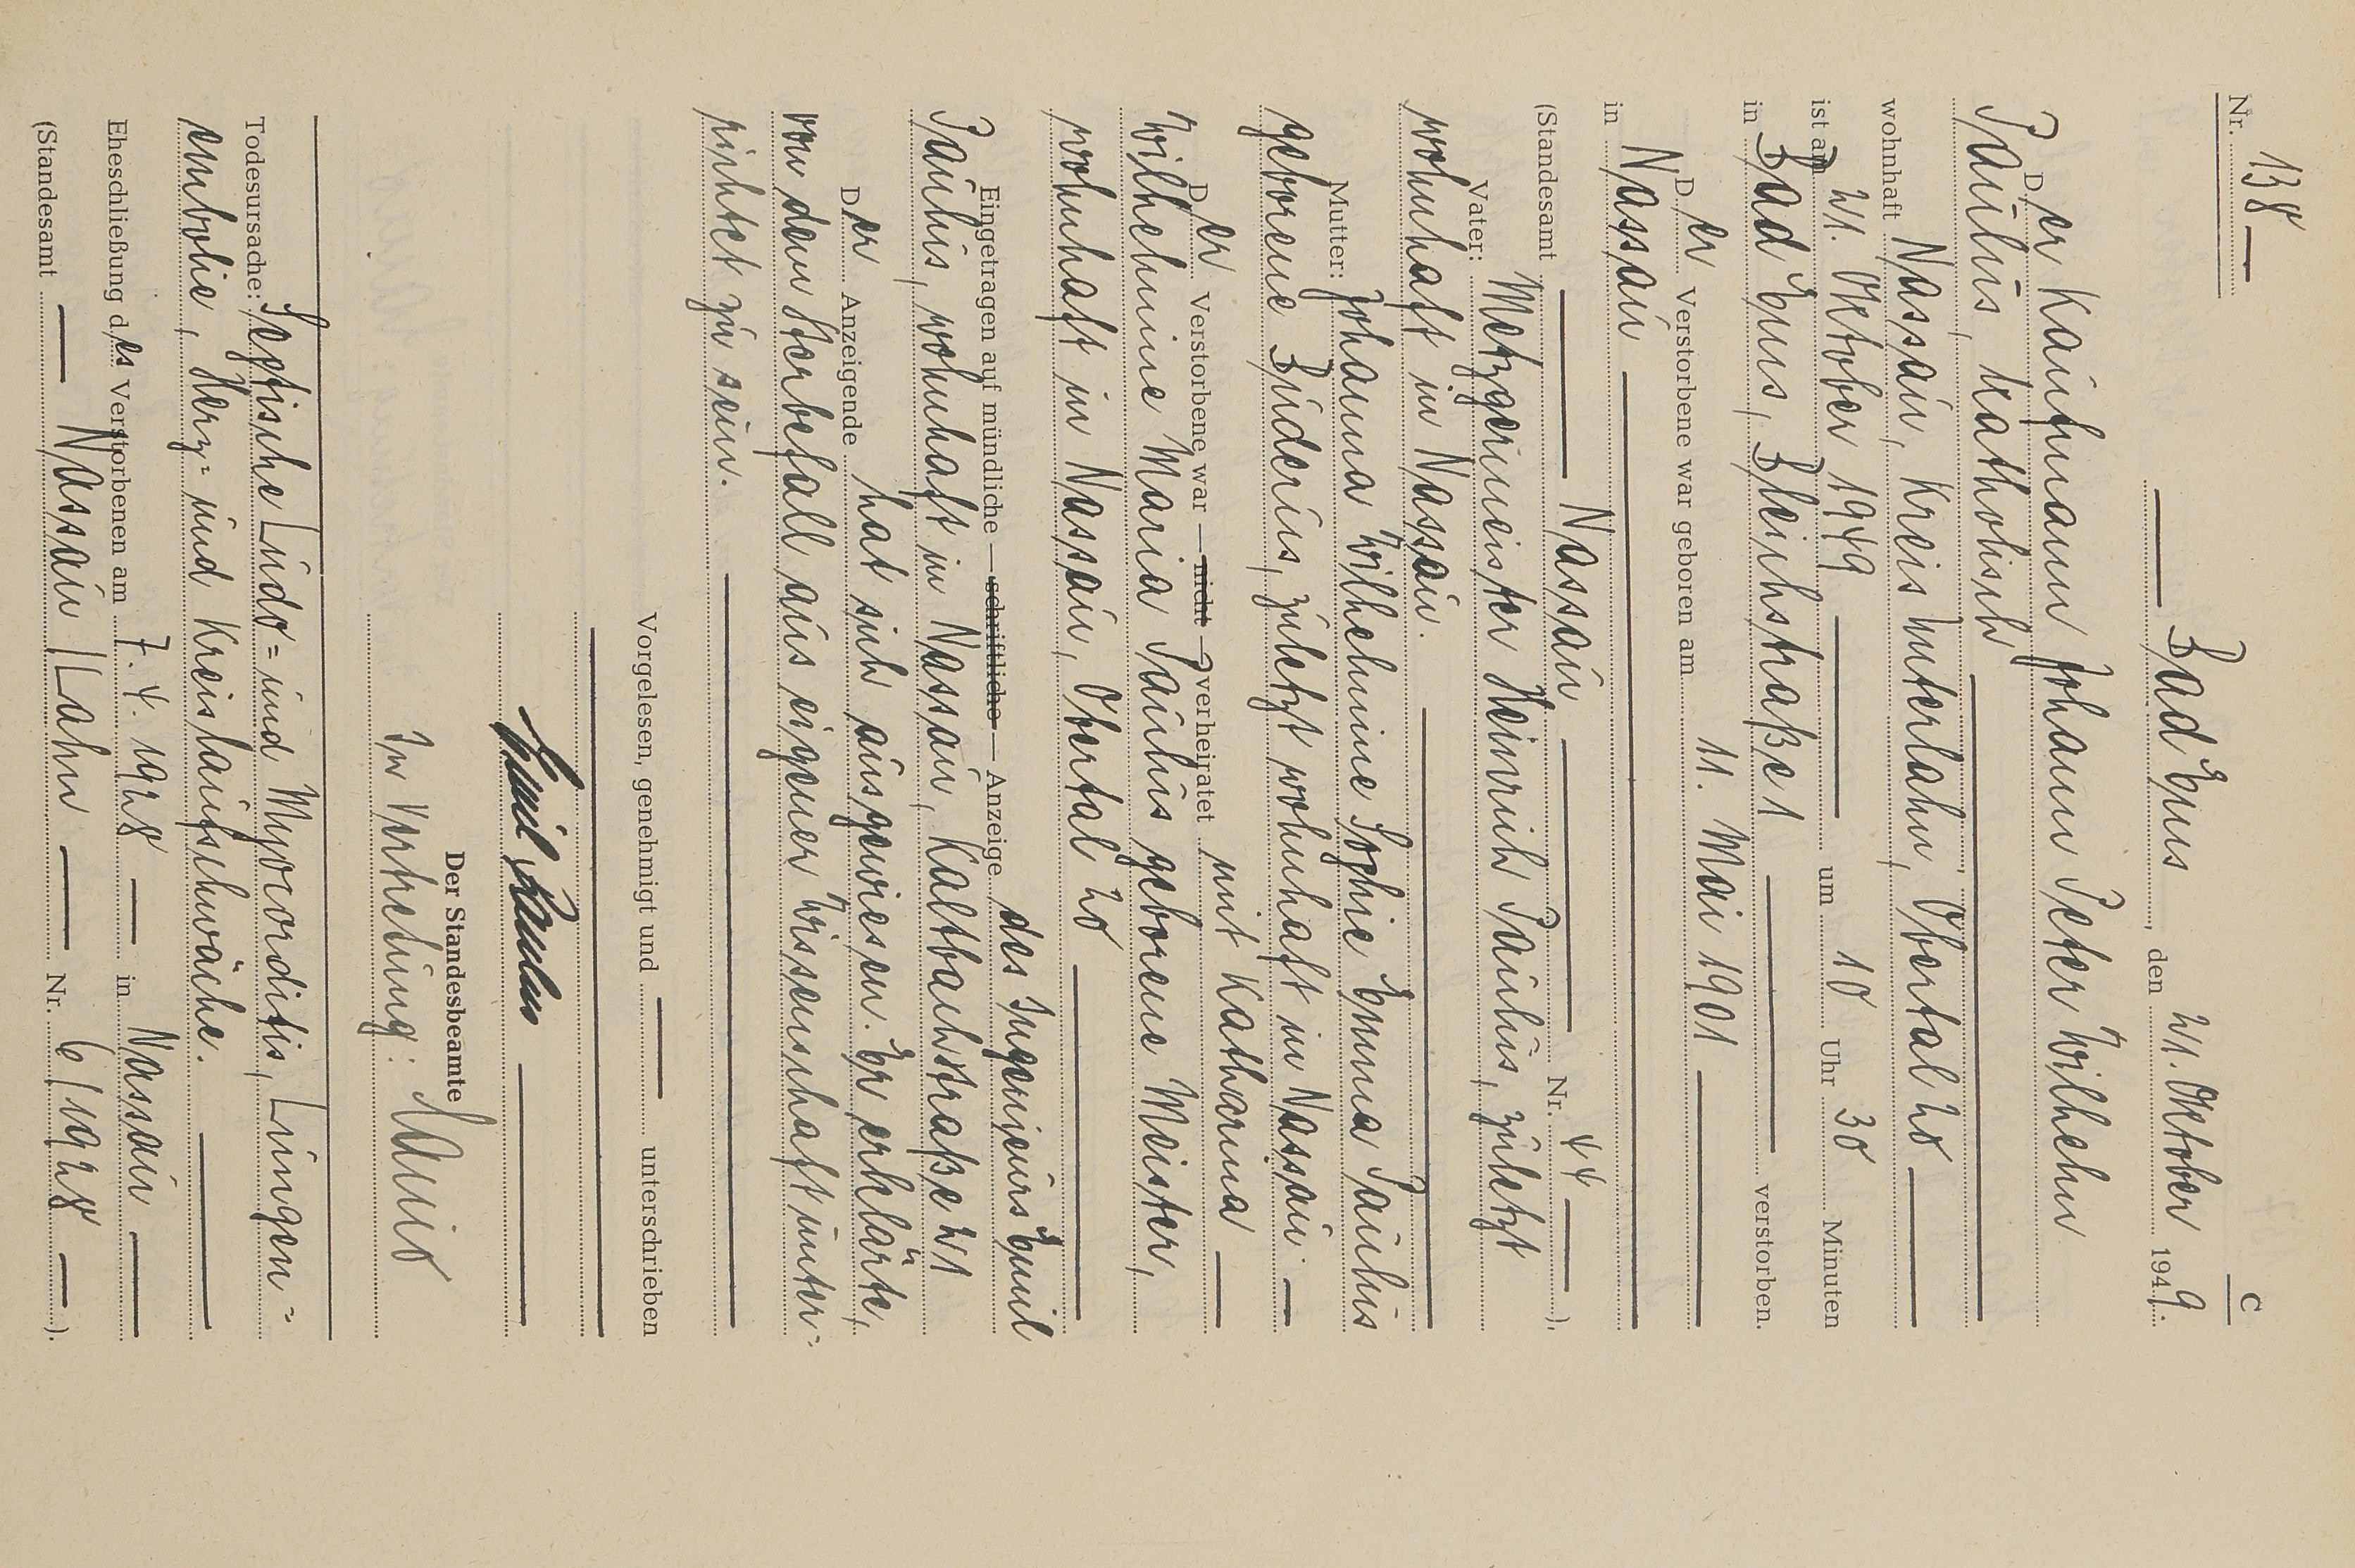 C
Nr. 138
Bad Ems, den 21. Oktober 1949.
Der Kaufmann Johann Peter Wilhelm
Paulus, katholisch
wohnhaft Nassau, Kreis Unterlahn, Obertal 20
ist am 21. Oktober 1949 um 10 Uhr 30 Minuten
in Bad Ems, Bleichstraße 1 verstorben.
Der Verstorbene war geboren am 11. Mai 1901
in Nassau
(Standesamt Nassau Nr. 44 ),
Vater: Metzgermeister Heinrich Paulus, zuletzt
wohnhaft in Nassau.
Mutter: Johanna Wilhelmine Sophie Emma Paulus
geborene Buderus, zuletzt wohnhaft in Nassau.
Der Verstorbene war — nicht — verheiratet mit Katharina
Wilhelmine Maria Paulus geborene Meister,
wohnhaft in Nassau, Obertal 20
Eingetragen auf mündliche — schriftliche — Anzeige des Ingenieurs Emil
Paulus, wohnhaft in Nassau, Kaltbachstraße 21
Der Anzeigende hat sich ausgewiesen. Er erklärte,
von dem Sterbefall aus eigener Wissenschaft unter-
richtet zu sein.
Vorgelesen, genehmigt und unterschrieben
Emil Paulus
Der Standesbeamte
In Vertretung:
Todesursache: Septische Endo= und Myocorditis, Lungen=
embolie, Herz= und Kreislaufschwäche.
Eheschließung des Verstorbenen am 7. 4. 1928 in Nassau
(Standesamt Nassau/Lahn Nr. 6/1928 ).